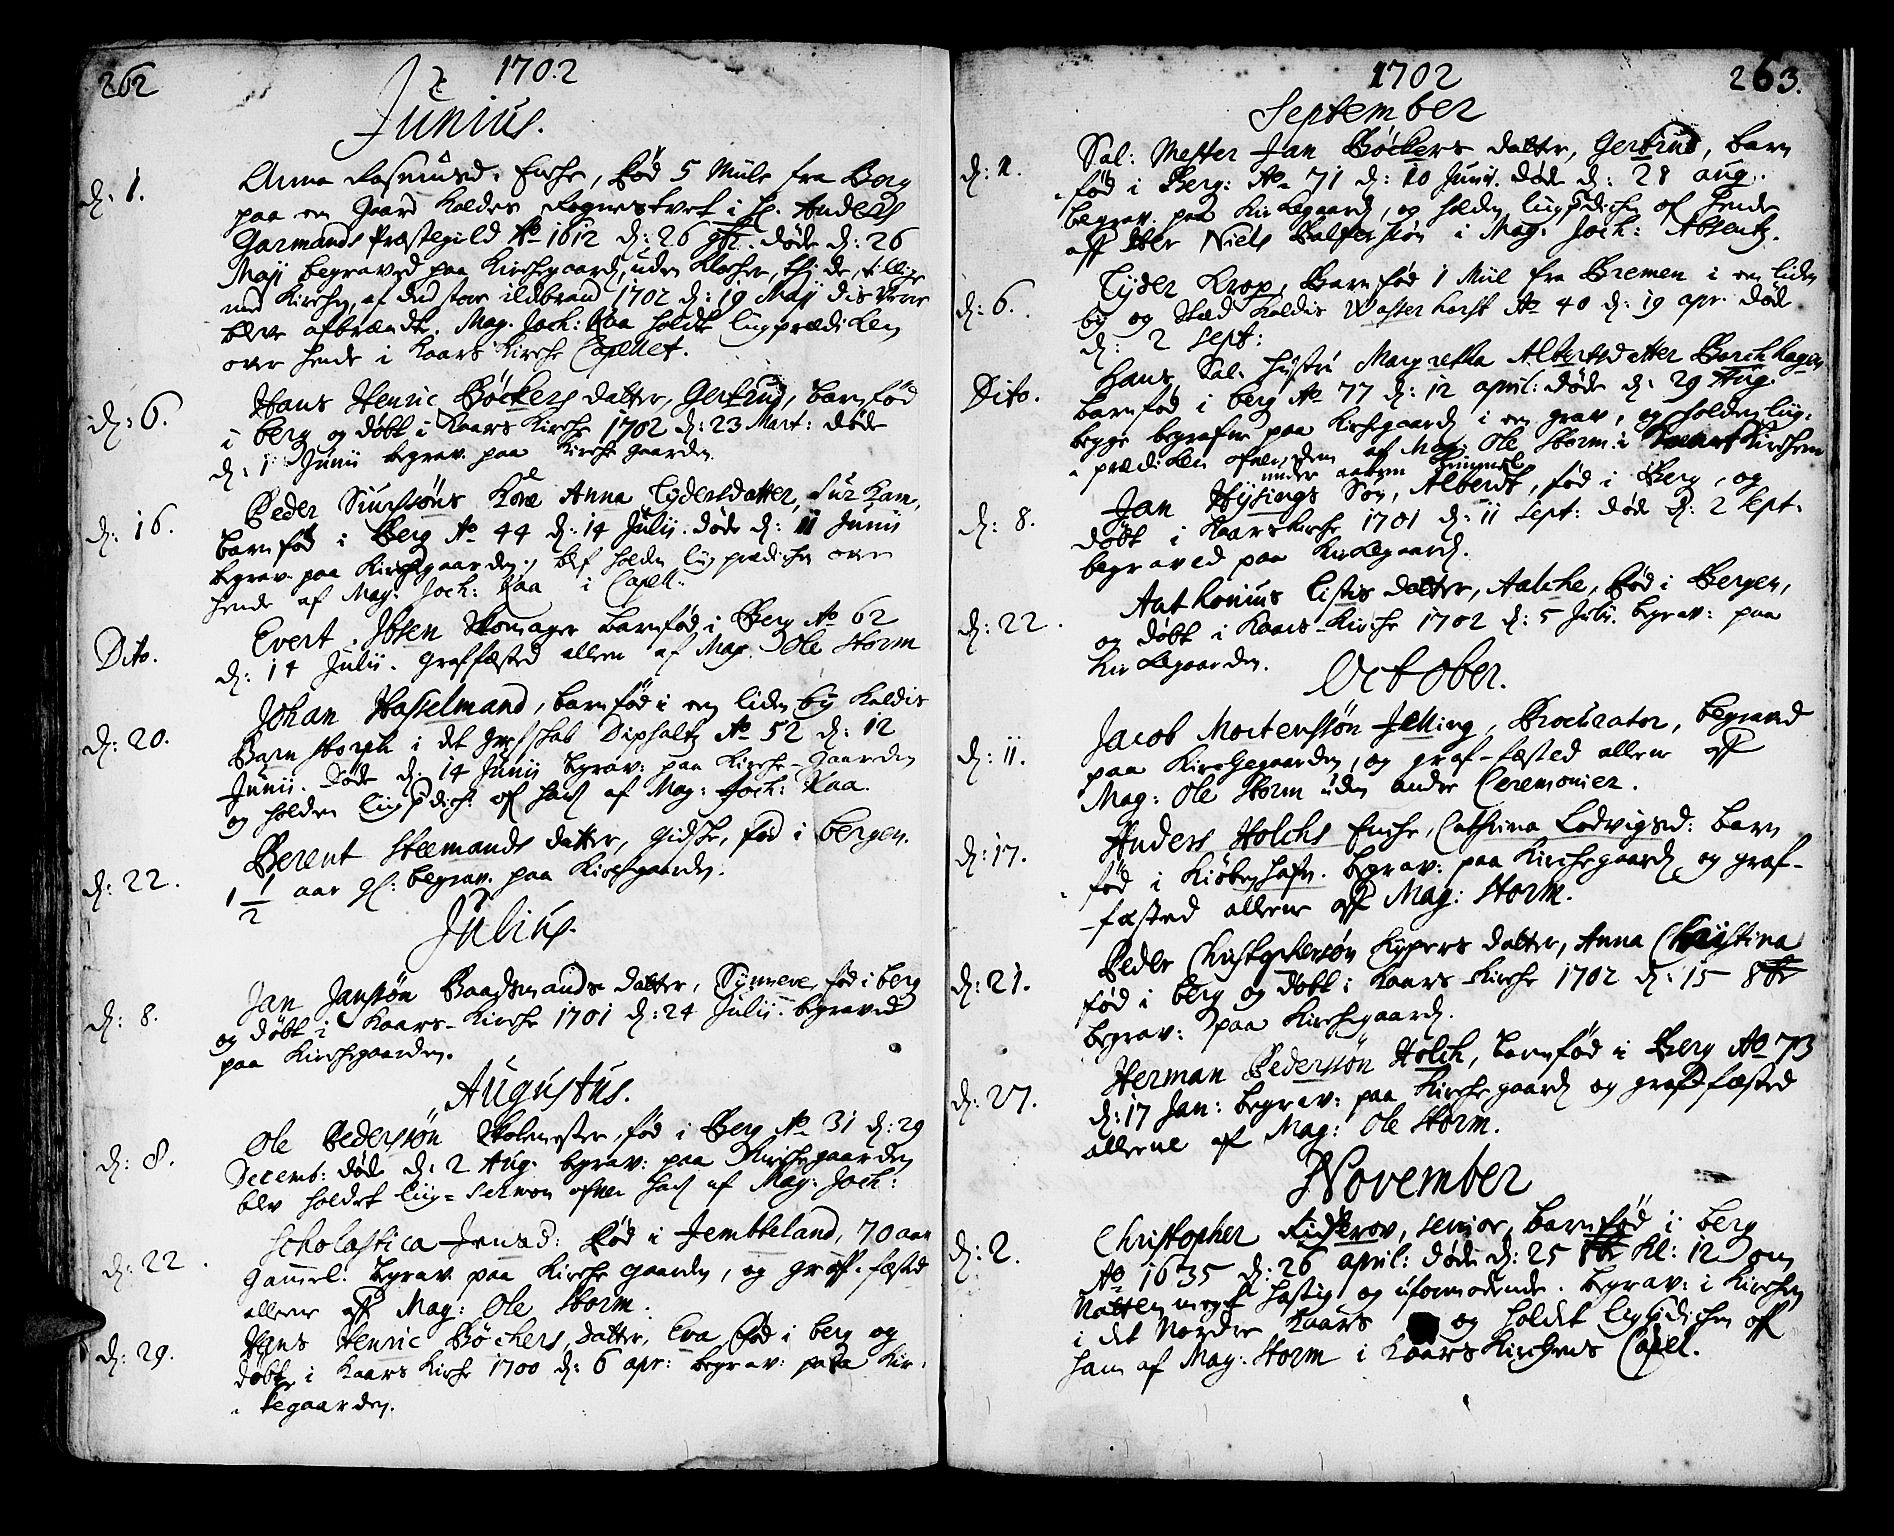 262
1702
Junius.
d: 1.
Anna Rasmusd: Enche, Fød 5 Mule fra Berg
paa en Gaard Kaldes Rognestvet i H. Anders
Garmands Præstegield Ao 1612 d: 26 døde d: 26
Maji begraved paa Kirchegaard, uden Klocher, thi de, tillige
med Kirchen, af den store ildbrand 1702 d: 19 Maji
bleve afbrændte. Mag. Joch: Raa holdte liigprædiken
over hende i Kaars Kirche Capellet.
d: 6.
Hans Henric Böckers datter, Gertrud, barnfød
i berg og døbt i Kaars Kirche 1702 d: 23 Mart: døde
d: 1 Junii begrav. paa Kirchegaarden
d: 16.
Peder Siurssöns Kone Anna Lydersdatter,
barnfød i Berg Ao 44 d: 14 Julii. døde d: 11 Junii
begrav. paa Kirchegaarden, blef holden liigprædichen over
hende af Mag: Joch: Raa i Capell.
Dito.
Evert Ibsen Skomager barnfød i Berg Ao 62
d: 14 Julii. graffæsted allene af Mag. Ole Storm
d: 20.
Johan Hasselmand, barnfød i en liden by kaldis
Barnstorph i det grefschab Diphaltz Ao 52 d: 12
Junii. Døde d: 14 Junii begrav: paa Kirche-Gaarden
og holden liigpdich: of: ham af Mag: Joch: Raa.
d: 22.
Berent Steemands datter, Gidske, fød i bergen.
1 1/2 aar gl: begrav. paa Kirchgaarden.
Julius.
d: 8.
Jan Janssön Baadsmands datter, Synneve, fød i berg
og døbt i Kaars-Kirche 1701 d: 24 Julii. begraved
paa Kirchegaarden.
Augustus.
d: 8.
Ole Pederssön Skolemester, fød i Berg Ao 31 d: 29
Decemb: døde d: 2 Aug. begrav: paa Kirchegaarden
blev holdet liig-sermon ofver ham af Mag: Joch:
d: 22.
Scholastica Jensd: Fød i Jembteland, 70 aar
Gammel. begrav. paa Kirchegaarden, og graff-fæsted
allene aff Mag: Ole Storm.
d: 29.
Hans Henric Böchers datter, Eva, Fød i berg og
døbt i Kaars Kirche 1700 d: 6 apr: begrav: paa Kir-
kegaarden.
1702
263.
September
d: 1.
Sal: Mester Jan Böckers datter, Gertrud, barn
fød i Berg: Ao 71 d: 10 Junii. døde d: 28 aug.
begrav: paa Kirkegaard, og holden liigpdichen of hende
aff Her Niels i Mag: Joch: Absentz.
d: 6.
Lyder Krop, Barnfød 1 Miil fra Bremen i en liden
by og stæd kaldis Wasserhorst Ao 40 d: 19 apr. død
d: 2 Sept:
Dito.
Hans Sal. Hustru Margretha Albertsdatter Borchhagen
barnfød i berg Ao 77 d: 12 april: døde d: 29 Aug.
begge begrafne paa Kirchgaard i en grav, og holden liig-
prædiken ofver dem af Mag: Ole Storm i Kaars Kirchen
under aaben himmel
d: 8.
Jan Hysings Søn, Alberdt, fød i Berg, og
døbt i Kaarskirche 1701 d: 11 Sept: døde d: 2 Sept:
begraved paa Kirkegaard.
d: 22.
Anthonius Listis datter, Aalche, fød i Bergen,
og døbt i Kaars-Kirche 1702 d: 5 Juli. begrav: paa
Kirkegaarden.
October.
d: 11.
Jacob Mortenssøn Jelling, Procurator, begraved
paa Kirchegaarden, og graf-fæsted allene aff
Mag: Ole Storm uden andre Ceremonier.
d: 17.
Anders Holchs Enche, Cathrina Lodvigsd: barn
fød i Kiøbenhafn. begrav: paa Kirchegaard og graf-
fæsted allene aff Mag: Storm.
d: 21.
Peder Christophersøn Kypers datter, Anna Christina
fød i berg og døbt i Kaars-Kirche 1702 d: 15 8br
begrav: paa Kirchegaard.
d: 27.
Herman Pederssön Holch, barnfød i Berg Ao 73
d: 17 Jan: begrav: paa Kirchegaard og graffæsted
allene af Mag: Ole Storm.
November
d: 2.
Christopher senior, barnfød i berg
Ao 1635 d: 26 april: døde d: 25 8br Kl: 12 om
Natten meget hastig og uformodende. begrav: i Kirchen
i det Nordre Kaars og holdet liigpdichen off
ham af Mag: Storm i Kaars Kirchens Capel.